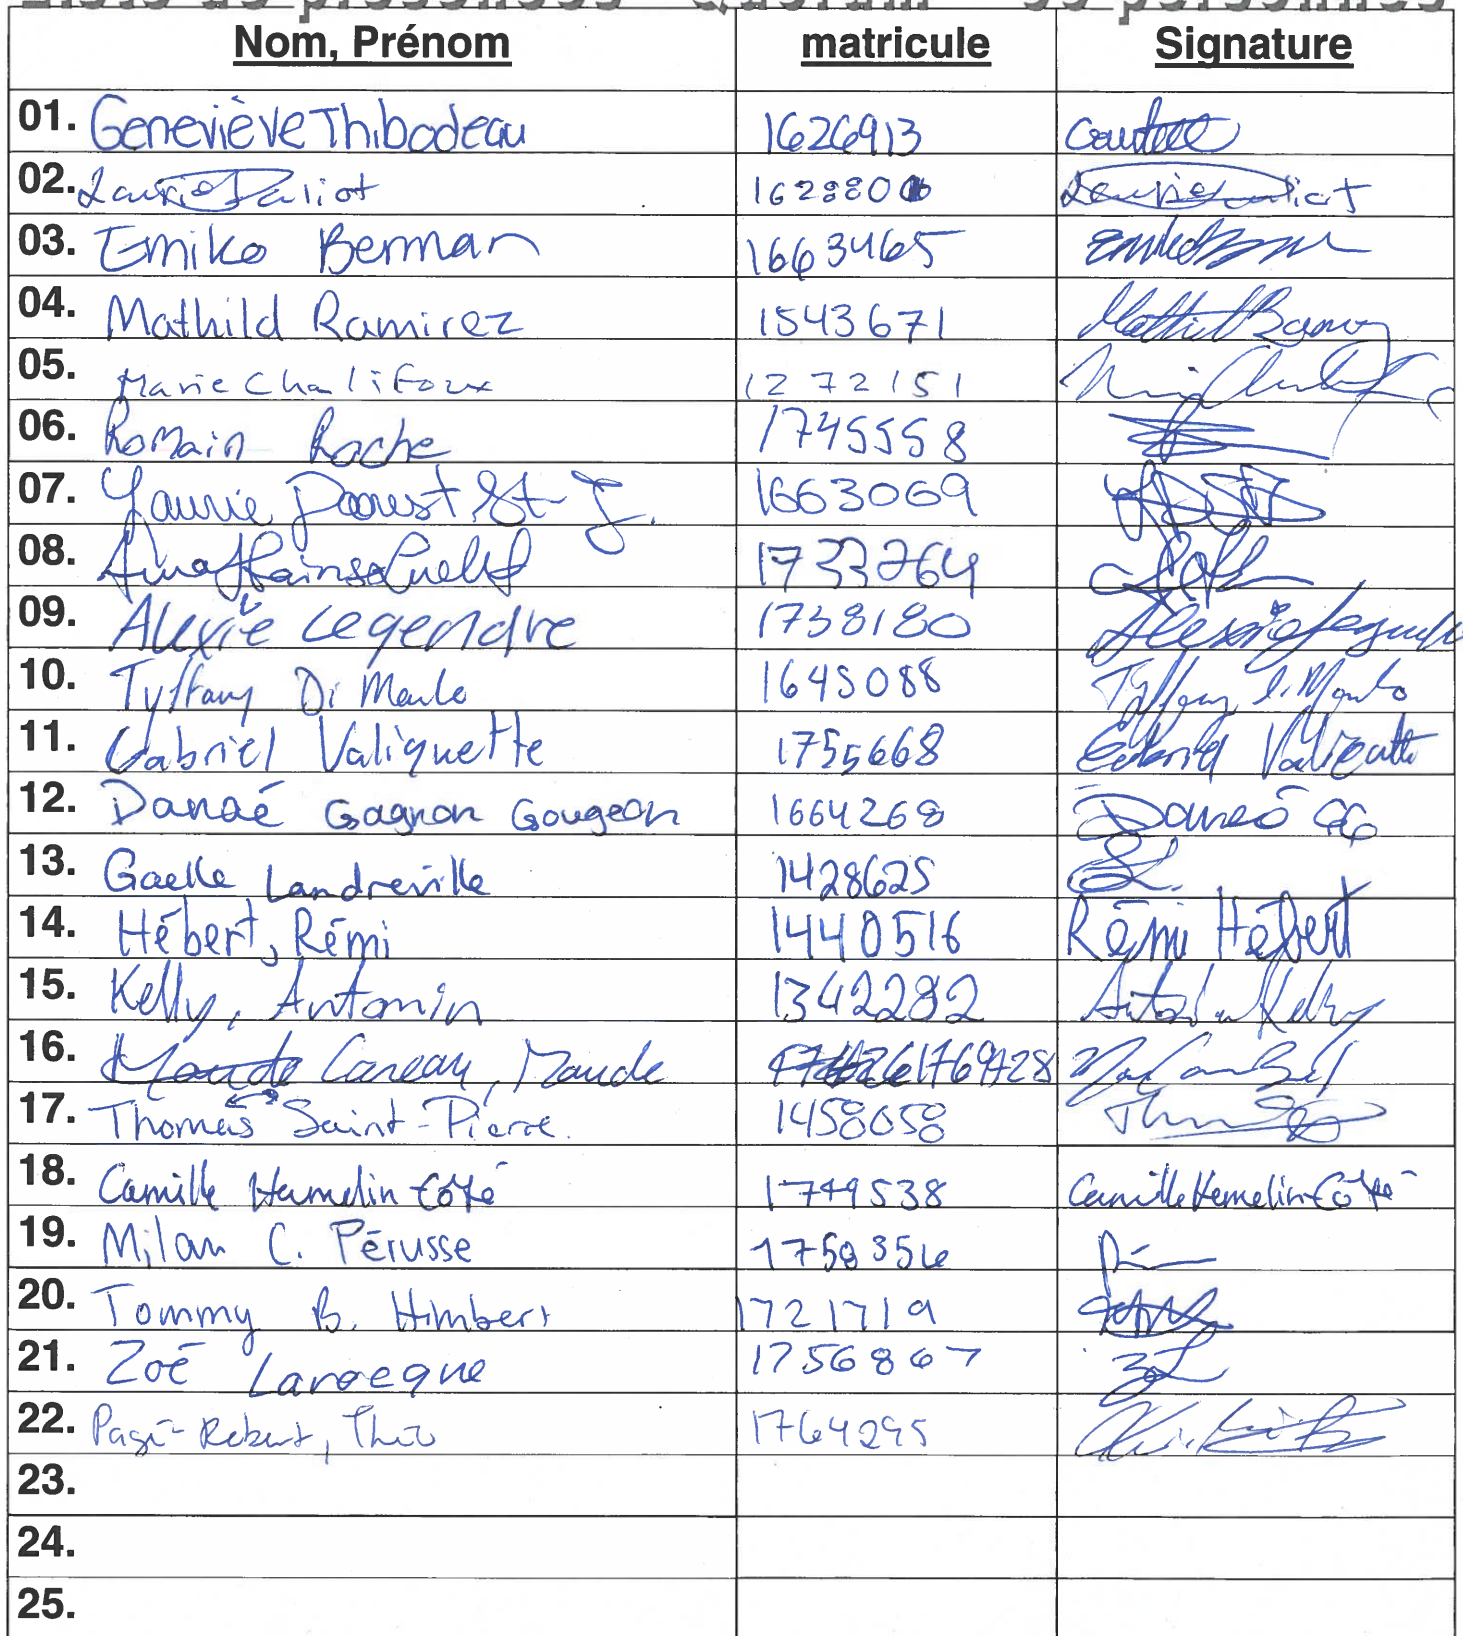 Liste de présences Quorum personnes
Nom, Prénom matricule Signature
01. Geneviève Thibodeau 1626913
02. Laurie Daliot 162880
03. Emiko Berman 1663465
04. Mathild Ramirez 1543671
05. Marie Chalifoux 1272151
06. Romain Roche 1745558
07. Laurie Daoust St-J. 1663069
08. 1733764
09. Alexie Legendre 1738180 Alexie Legendre
10. Tyffany Di Manlo 1645088 Tyffany Di Manlo
11. Gabriel Valiquette 1755668 Gabriel Valiquette
12. Danaé Gagnon Gougeon 1664268 Danaé GG
13. Gaelle Landreville 1428625
14. Hébert, Rémi 1440516 Rémi Hébert
15. Kelly, Antonin 1342282 Antonin Kelly
16. Careau, Maude 1769728
17. Thomas Saint-Pierre. 1458058
18. Camille Hamelin-Côté 1749538 Camille Hamelin-Côté
19. Milan C. Pérusse 1758356
20. Tommy B. Himbert 1721719
21. Zoé Larocque 1756867 ZL
22. Pagé-Rebert, Théo 1764295
23.
24.
25.